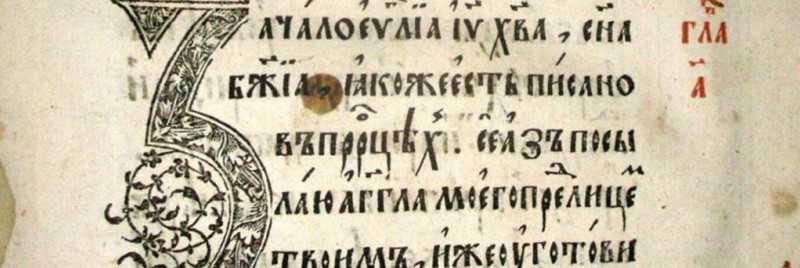 Зачало еѵⷢ҇лїа і҆у҃ хв҃а, сн҃а
бж҃їа, ꙗ҆коже є҆сть писано
въ пррⷪ҇цѣхъ. се а҆зъ посы
лаю а҆г҃гла моего преⷣ лицеⷨ
твоимъ, и҆же ᲂу҆готови
гла
а҃